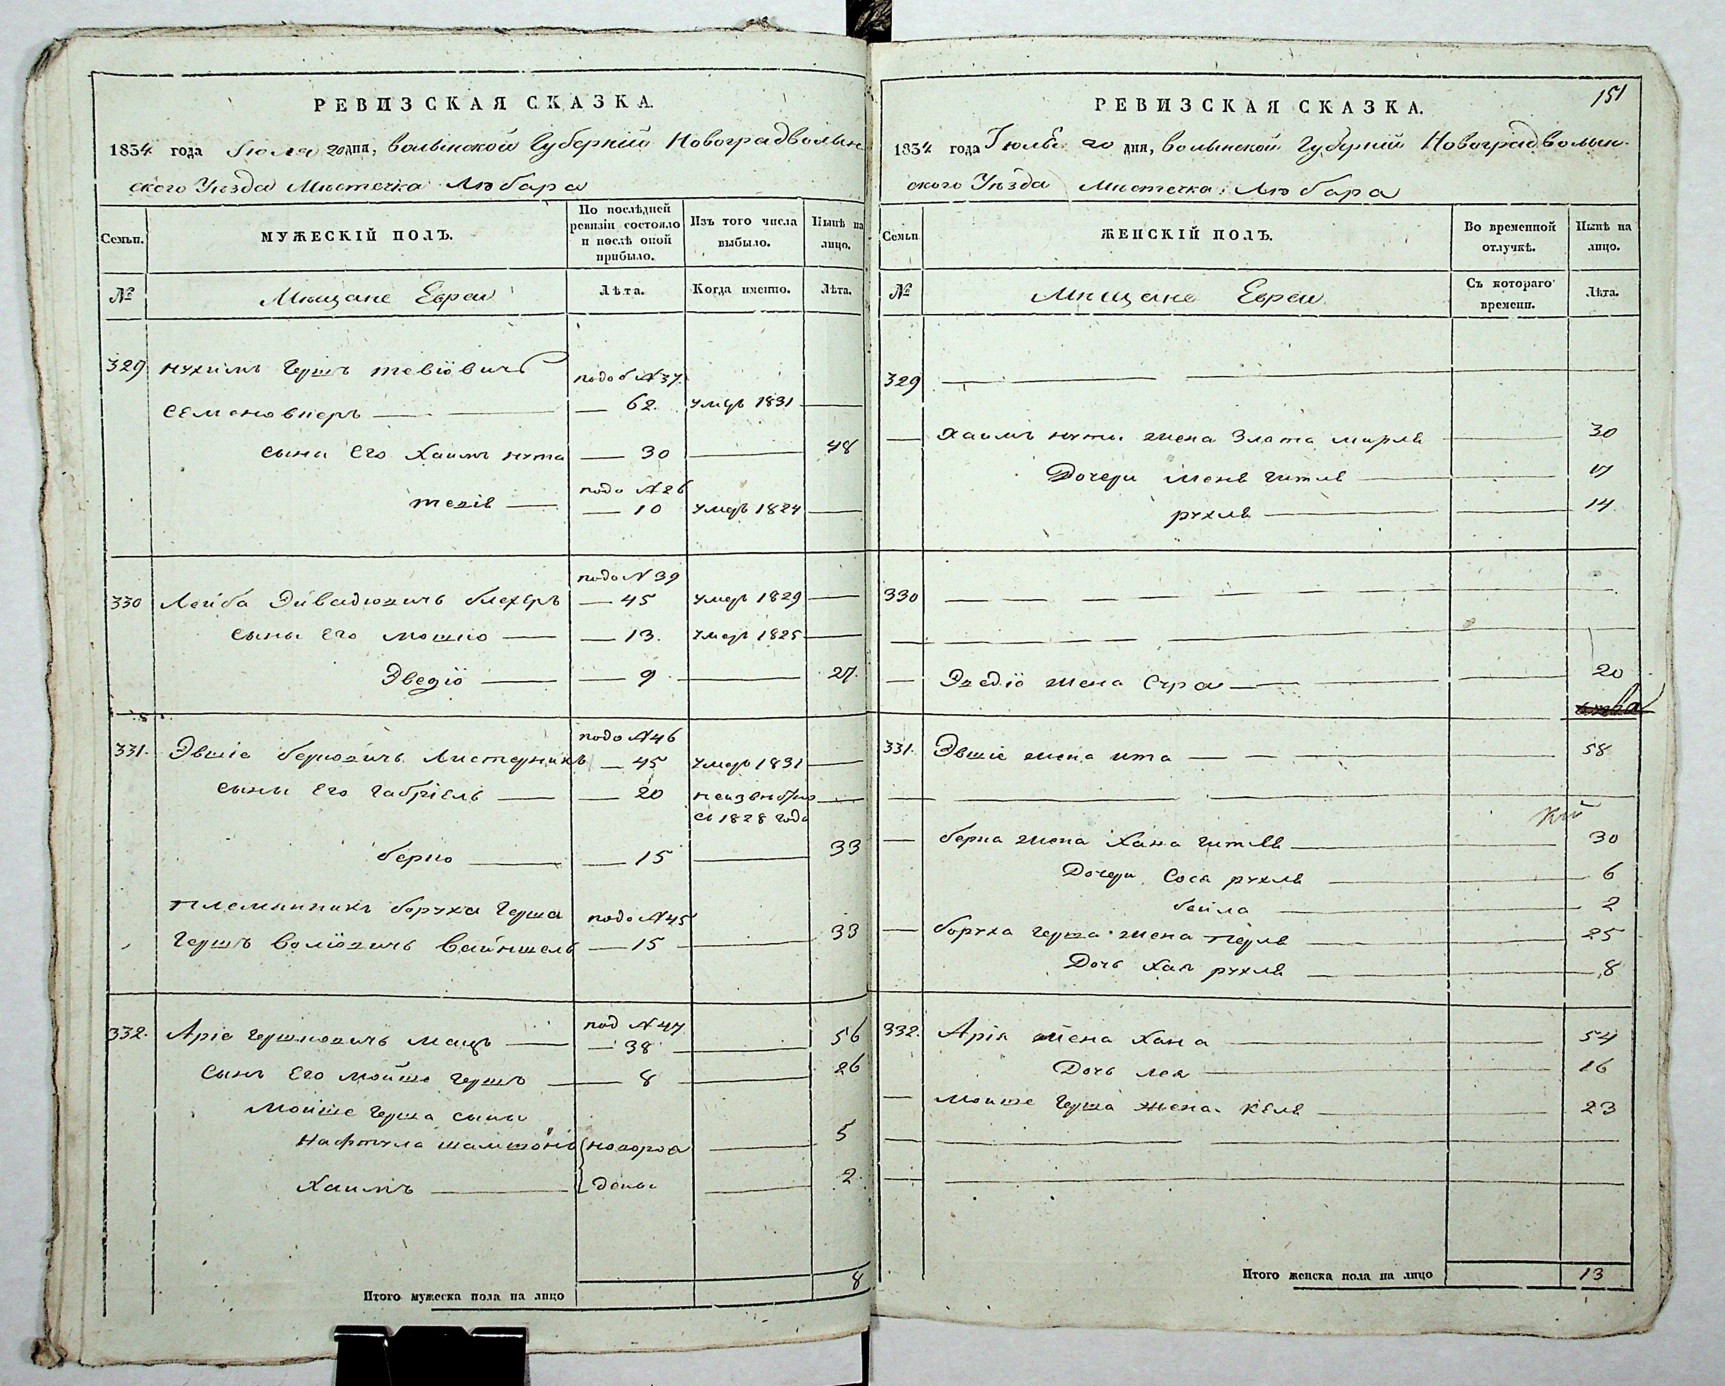 РЕВИЗСКАЯ СКАЗКА.
1834 года Іюля 20 дня, Волынской Губерніи Новоградволын
ского Уѣзда Мѣстечка Любара
Семьи.
МУЖЕСКІЙ ПОЛЪ.
По послѣдней ревизіи состояло и послѣ оной прибыло.
Изъ того числа выбыло.
Нынѣ на лицо.
№
Мѣщане Евреи
Лѣта.
Когда именно.
Лѣта.
329 Нухимъ Гершъ Тевіовичъ подо N 37
— 62. умеръ 1831
сыны Его Хаимъ Нута — 30 48
подо N 26
Тевіе — 10 умеръ 1824
подо N 39
330 Лейба Эйвадіовичъ блехеръ — 45 умеръ 1829
сыны Его Мошко — 13. умеръ 1825
— 9 27.
подо N 46
331. Эвшіе берковичъ — 45 умеръ 1831
сыны Его Габріель — 20
съ 1828 года
берко — 15 33
племянникъ боруха Герша подо N 45
Гершъ Волїовичъ Вайншель — 15 33
под N 47
332. Аріе Гершковичъ — 38 56
сынъ Его Мойше Гершъ — 8 26
Мойше Герша сыны
Нафтула новорож 5
Хаимъ — дены 2.
Итого мужеска пола на лицо 8
151
РЕВИЗСКАЯ СКАЗКА.
1834 года Іюля 20 дня, Волынской Губерніи Новоградволын-
ского Уѣзда Мѣстечка Любара
Семьи
ЖЕНСКІЙ ПОЛЪ.
Во временной отлучкѣ.
Нынѣ на лицо.
№
Мѣщане Евреи
Съ котораго времени.
Лѣта.
329
Хаимъ Нути жена Злата Мирля 30
Дочери Гитля 17
рухля 14
330
жена Сура 20
331. Эвшіе жена Ита 58
берка жена Хана Гитля 30
Дочери Соса рухля 6
бейла 2
боруха Герша жена перля 25
Дочь рухля 8
332. Арія жена Хана 54
Дочь Лея 16
Мойше Герша жена 23
Итого женска пола на лицо 13